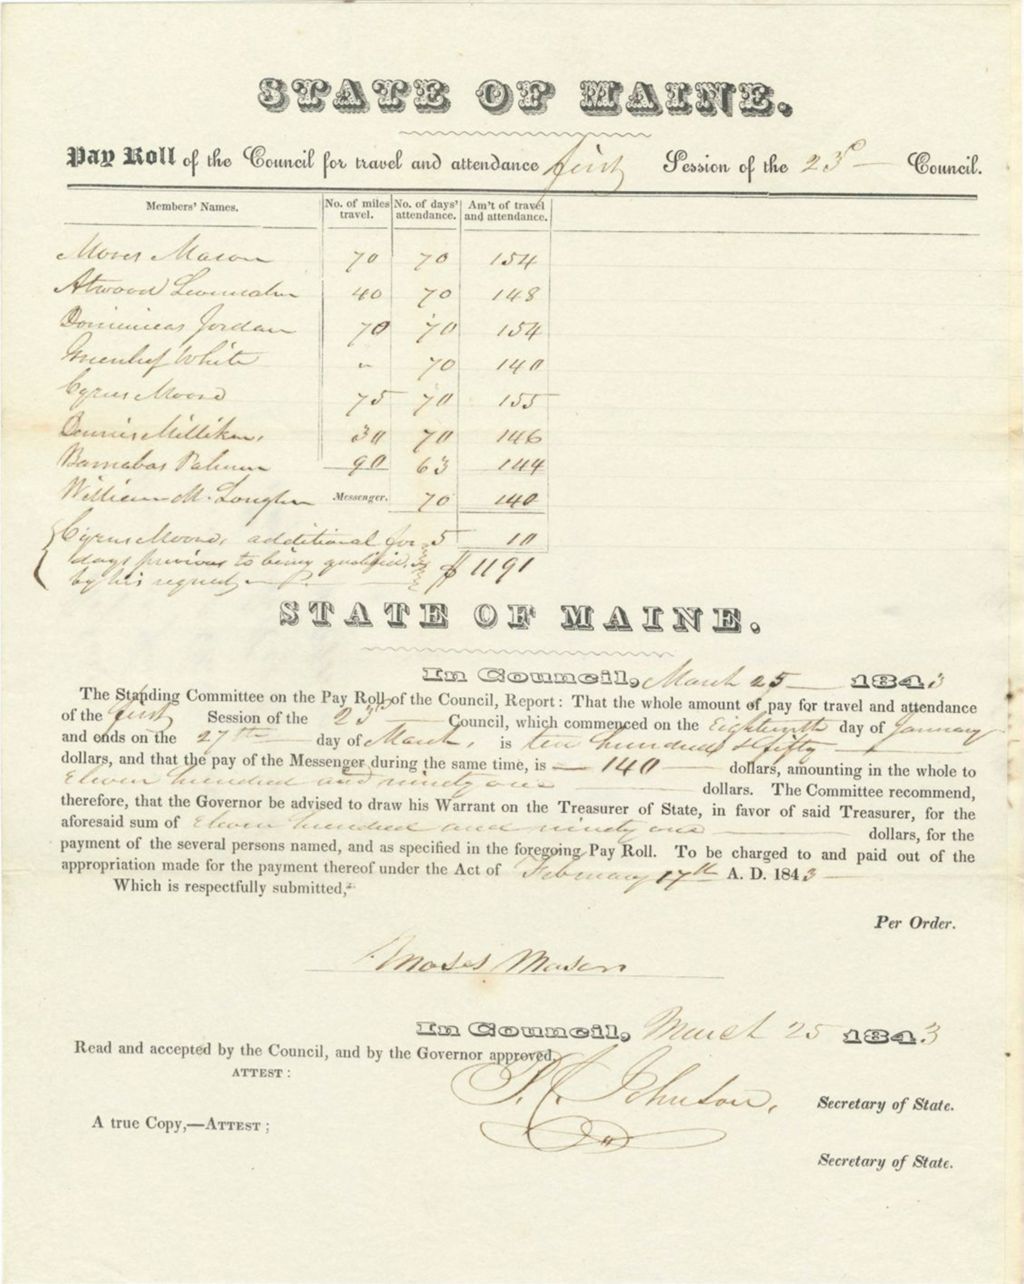 STATE OF MAINE.
Pay Roll of the Council for travel and attendance first Session of the 23d Council.
Members' Names. No. of miles travel. No. of days' attendance. Am't of travel and attendance.
Moses Mason 70 70 154
Atwood Levensaler 40 70 148
Dominicus Jordan 70 70 154
Greenlief White " 70 140
Cyrus Moore 75 70 155
Dennis Milliken, 30 70 146
Barnabas Palmer 90 63 144
William M. Messenger. 70 140
Cyrus Moore, additional for 5 10
days previous to being qualified, $1191
by his request
STATE OF MAINE.
In Council, March 25 1843
The Standing Committee on the Pay Roll of the Council, Report: That the whole amount of pay for travel and attendance
of the first Session of the 23d Council, which commenced on the Eighteenth day of January
and ends on the 27th day of March, is ten hundred & fifty
dollars, and that the pay of the Messenger during the same time, is — 140 — dollars, amounting in the whole to
Eleven hundred and ninety one dollars. The Committee recommend,
therefore, that the Governor be advised to draw his Warrant on the Treasurer of State, in favor of said Treasurer, for the
aforesaid sum of Eleven hundred and ninety one dollars, for the
payment of the several persons named, and as specified in the foregoing Pay Roll. To be charged to and paid out of the
appropriation made for the payment thereof under the Act of February 17th A. D. 1843
Which is respectfully submitted,
Per Order.
Moses Mason
In Council, March 25 1843
Read and accepted by the Council, and by the Governor approved.
ATTEST:
P. C. Johnson, Secretary of State.
A true Copy,—ATTEST;
Secretary of State.